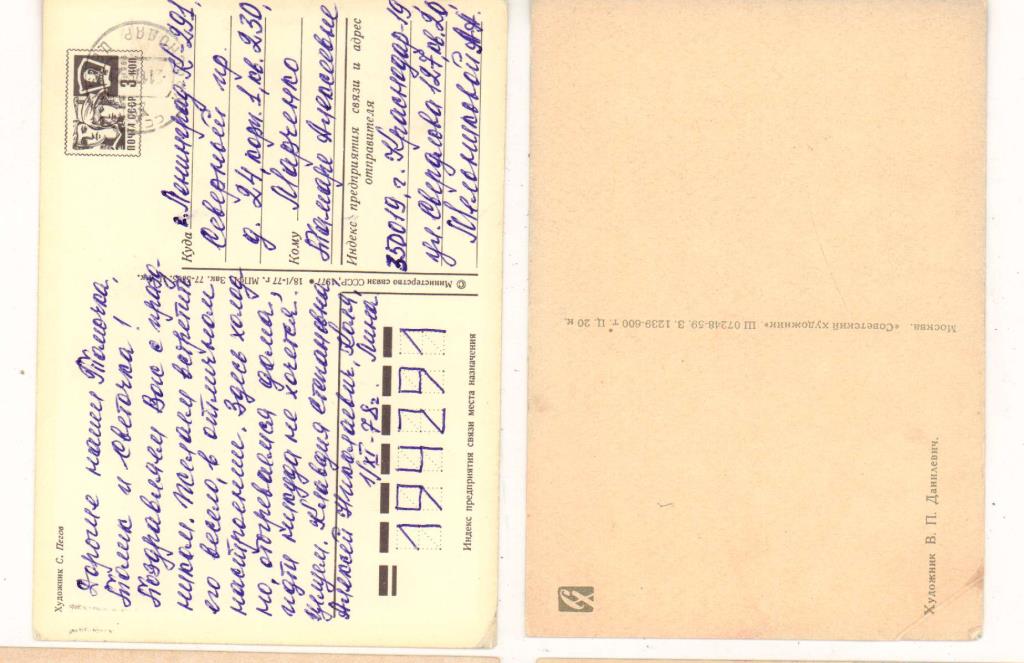 Художник С. Пегов
Дорогие наши Томочка,
Толик и Светочка!
Поздравляем Вас с празд-
ником. Желаем встретить
его весело, в отличном
настроении. Здесь холод-
но, обогреваемся дома,
идти никуда не хочется.
Целуем. Клавдия Степановна
Алексей Николаевич, Галя,
Лина
1/XI-78г
194291
Индекс предприятия связи места назначения
© Министерство связи СССР, 1977 * 18/I-77 г. МПФГ. Зак. 77-
ПОЧТА СССР 3 КОП
Куда г. Ленинград К-291
Северный пр.
д. 24, корп. 1, кв. 230
Кому Марченко
Тамаре Алексеевне
Индекс предприятия связи и адрес
отправителя
350019, г. Краснодар-19
ул. Свердлова 127, кв. 20
А.А.
Москва. «Советский художник». Ш 07248-59. З. 1239-600 т. Ц. 20 к.
Художник В. П. Данилевич.